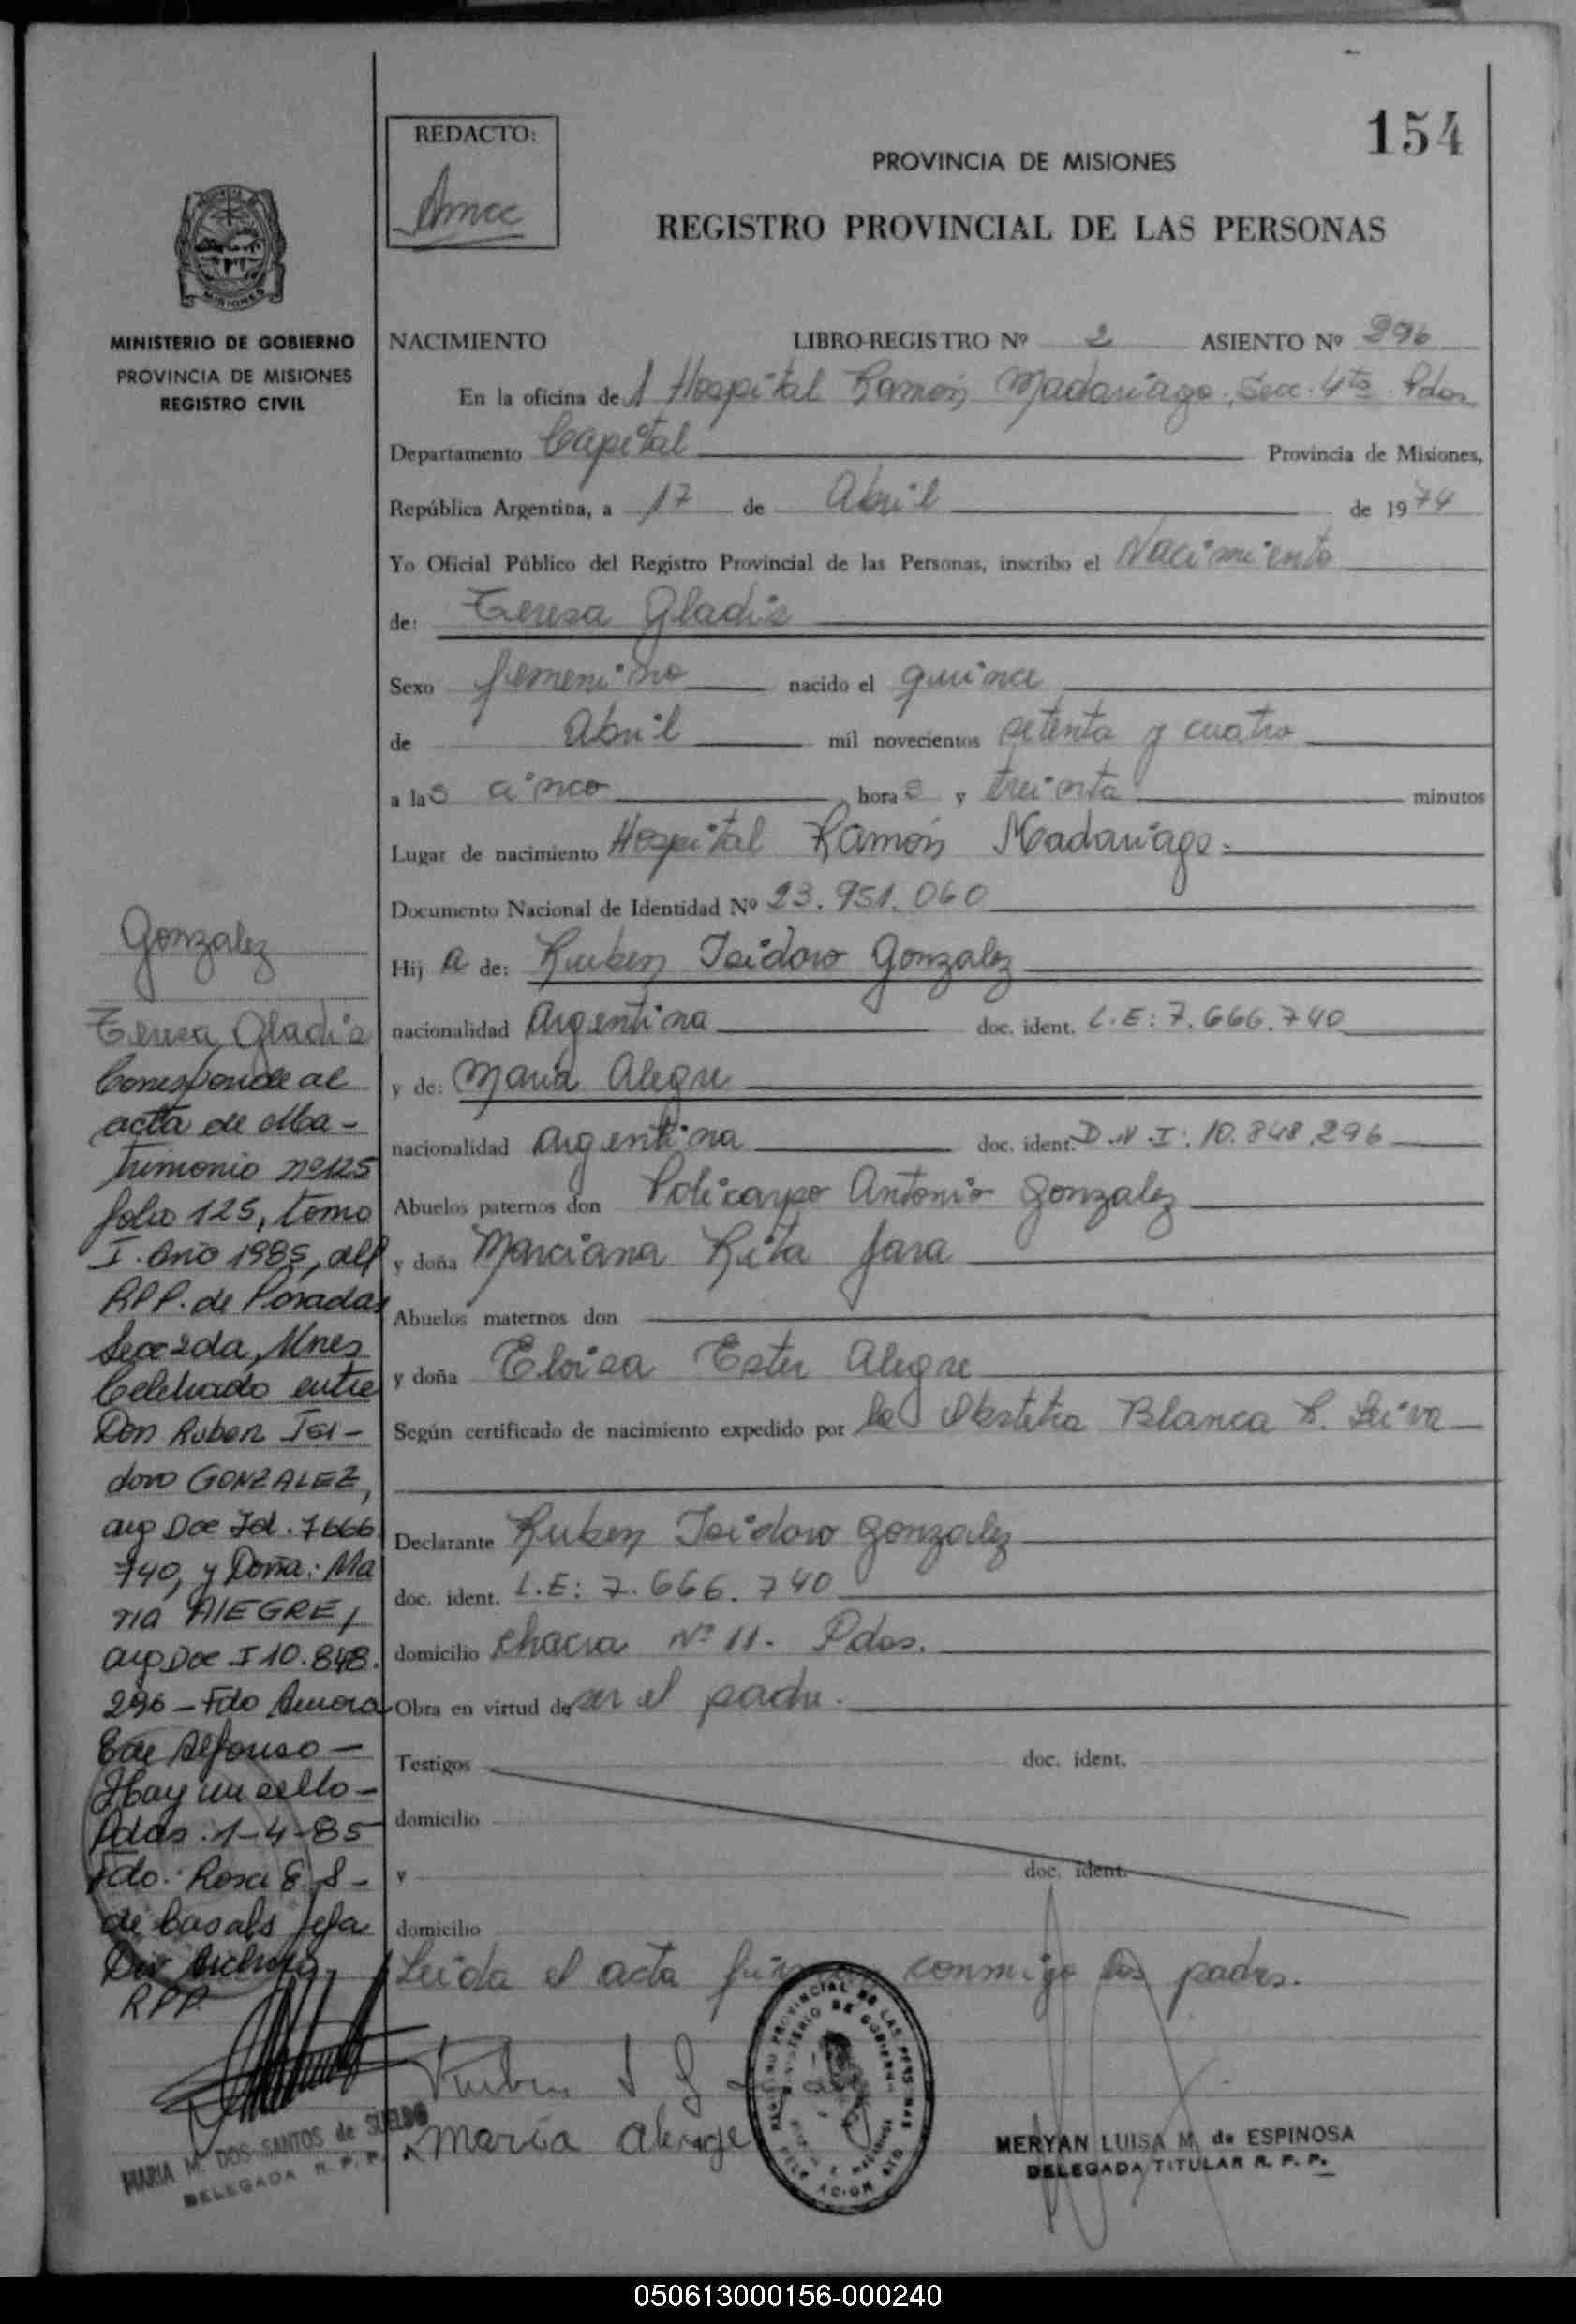 154
REDACTO:
PROVINCIA DE MISIONES
REGISTRO PROVINCIAL DE LAS PERSONAS
MISIONES
MINISTERIO DE GOBIERNO
PROVINCIA DE MISIONES
REGISTRO CIVIL
NACIMIENTO LIBRO-REGISTRO Nº 2 ASIENTO Nº 296
En la oficina del Hospital Ramón Madariaga. Secc. 4ta. Pdas
Departamento Capital Provincia de Misiones,
República Argentina, a 17 de Abril de 1974
Yo Oficial Público del Registro Provincial de las Personas, inscribo el Nacimiento
de: Teresa Gladis
Sexo femenino nacido el quince
de Abril mil novecientos setenta y cuatro
a las cinco horas y treinta minutos
Lugar de nacimiento Hospital Ramón Madariaga.
Documento Nacional de Identidad Nº 23.951.060
Hij a de: Ruben Isidoro Gonzalez
nacionalidad Argentina doc. ident. L.E: 7.666.740
y de: Maria Alegre
nacionalidad Argentina doc. ident. D.N.I: 10.848.296
Abuelos paternos don Policarpo Antonio Gonzalez
y doña Marciana Rita Jara
Abuelos maternos don
y doña Eloisa Ester Alegre
Según certificado de nacimiento expedido por la Obstetra Blanca R. Leiva
Declarante Ruben Isidoro Gonzalez
doc. ident. L.E: 7.666.740
domicilio chacra Nº 11. Pdas.
Obra en virtud de ser el padre.
Testigos doc. ident.
domicilio
y doc. ident.
domicilio
Leida el acta conmigo los padres.
Ruben I G
Maria
MERYAN LUISA M. de ESPINOSA
DELEGADA TITULAR R. P. P.
Gonzalez
Teresa Gladis
Corresponde al
acta de Ma-
trimonio nº125
folio 125, tomo
I. Año 1985, del
RPP. de Posadas
Secc 2da, Mnes
Celebrado entre
Don Ruben Isi-
doro GONZALEZ,
arg Doc Id. 7666
740, y Doña: Ma
ria AlEGRE,
arg Doc I 10.848.
296 - Fdo Aurora
Alfonso -
Hay un sello -
Pdas. 1-4-85
Fdo. Rosa E S -
de Casals Jefa
Div Archivo
RPP.
MARIA M. DOS SANTOS de SUELDO
DELEGADA R. P. P.
050613000156-000240